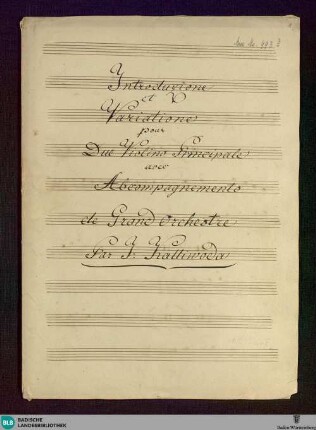 Introduzione
et
Variatione
pour
Due Violino Principale
avec
Accompagnemento
de Grand Orchestre
Par J. Kalliwoda
BLB BADISCHE
LANDESBIBLIOTHEK
Baden-Württemberg